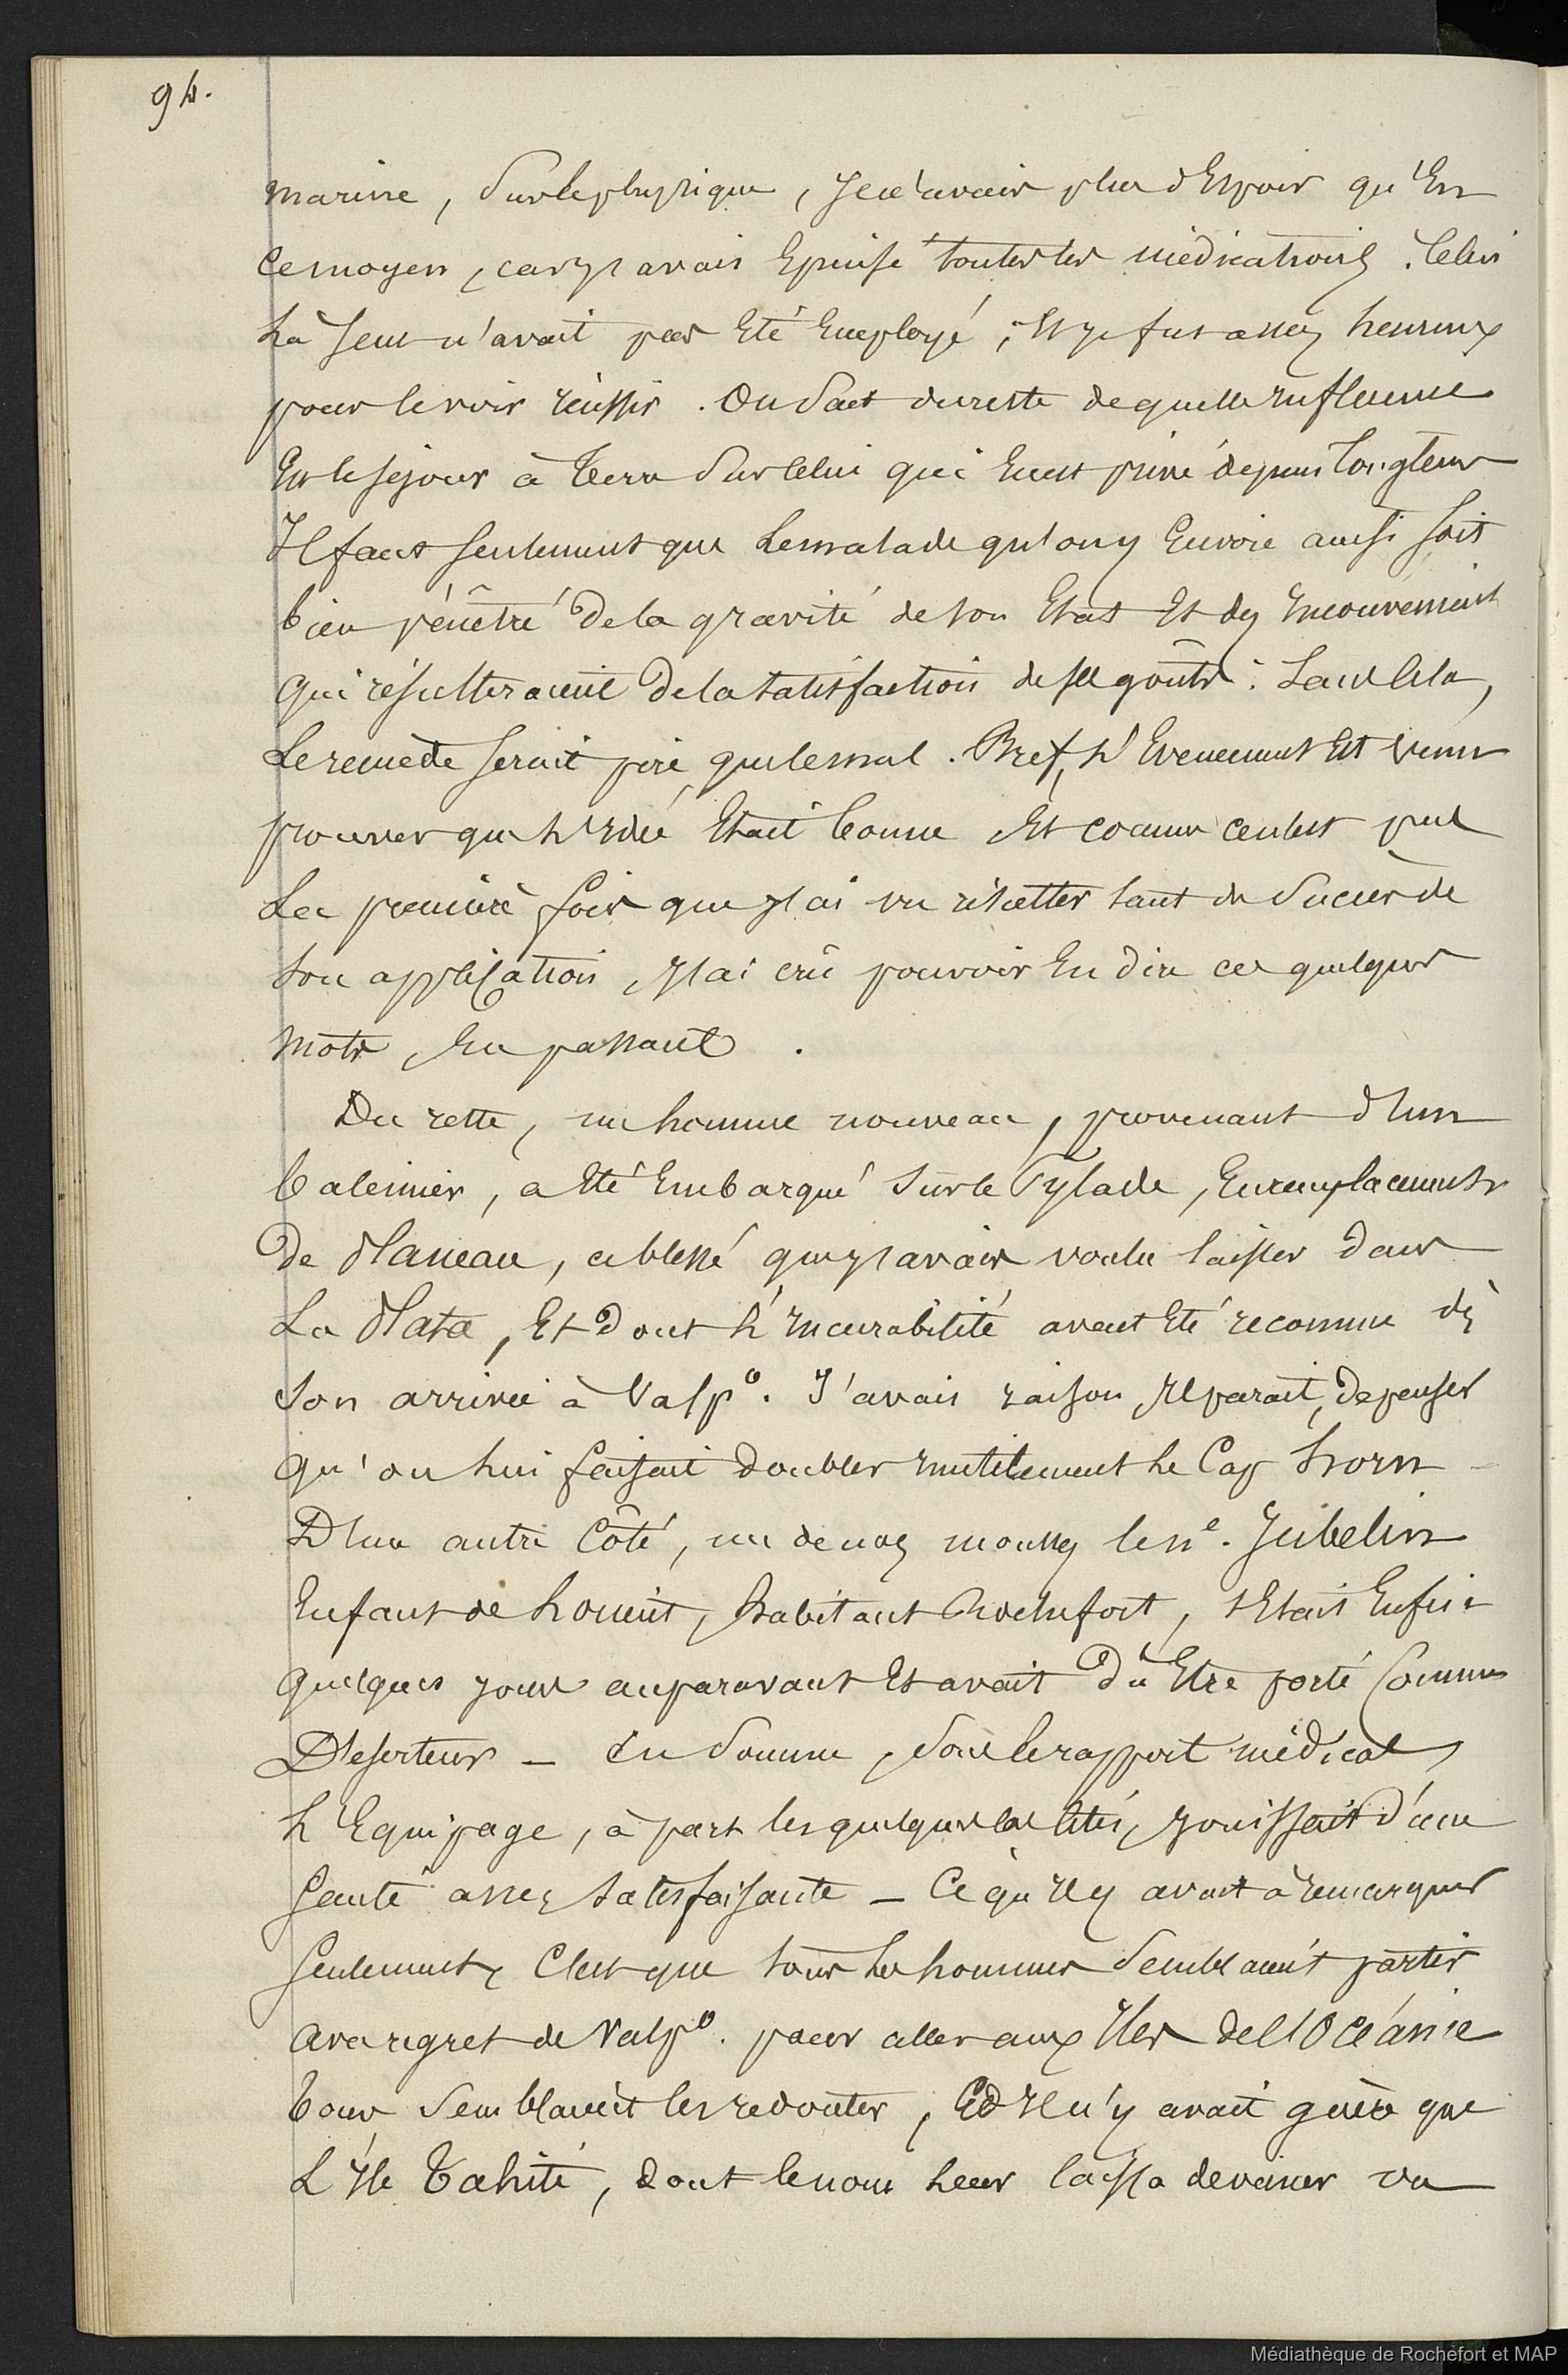 94.
marine, sur le physique, je n'avais plus d'Espoir qu'En
ce moyen, car j'avais Epuisé toutes les médications. Celui
Là seul n'avait pas Eté Employé, Et je fus assez heureux
pour le voir réussir. On sait du reste de quelle Influence
Est le séjour à terre sur celui qui En est privé depuis longtems
Il faut seulement que Le malade qu'on y Envoie aussi soit
bien pénêtré de la gravité de son Etat Et des Inconvénients
qui résulteraient de la satisfaction de ses goûts. Sans cela,
Le remède serait pire que le mal. Bref, L'Evenement Est venu
prouver que L'Idée Etait bonne Et comme ce n'est pas
La première fois que j'ai vu résulter tant de succès de
son application, j'ai crû pouvoir En dire ces quelques
mots, En passant.
Du reste, un homme nouveau, provenant d'un
baleinier, a Eté Embarqué sur le Pylade, En remplacement
De Planeau, ce blessé que j'avais voulu laisser dans
La Plata, Et dont L'Incurabilité avait Eté reconnue dès
son arrivée à Valpº. J'avais raison, Il parait, de penser
qu'on Lui faisait doubler Inutilement Le Cap Horn -
D'un autre Côté, un de nos mousses le né. Jubelin
Enfant de Lorient, habitant Rochefort, s'Etait Enfui
quelques jours auparavant Et avait dû Etre porté Comme
Déserteur — En somme, sous le rapport médical,
L'Equipage, à part les quelques cas cités, jouissait d'une
santé assez satisfaisante — Ce qu'Il y avait à remarquer
seulement, C'est que tous Les hommes semblaient partir
avec regret de Valpº. pour aller aux Iles de l'Océanie
tous semblaient les redouter, Et Il n'y avait guère que
L'Ile Tahiti, dont le nom Leur laissa deviner un
Médiathèque de Rochefort et MAP